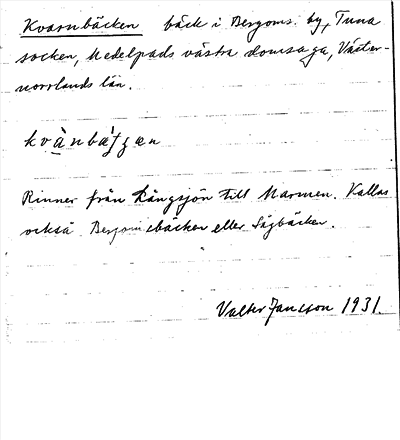 Kvarnbäcken bäck i Bergoms by, Tuna
socken, Medelpads västra domsaga, Väster-
norrlands län.
Rinner från Långsjön till Marmen. Kallas
också Bergomsbäcken eller Sågbäcken.
Valter Jansson 1931.